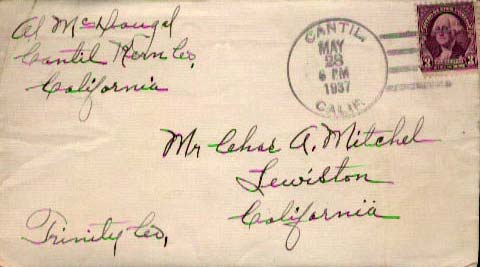 Al McDougal
Cantil Kern Co,
California
CANTIL,
MAY
28
6 PM
1937
CALIF.
3
Mr Chas A. Mitchel
Lewiston
California
Trinity Co,